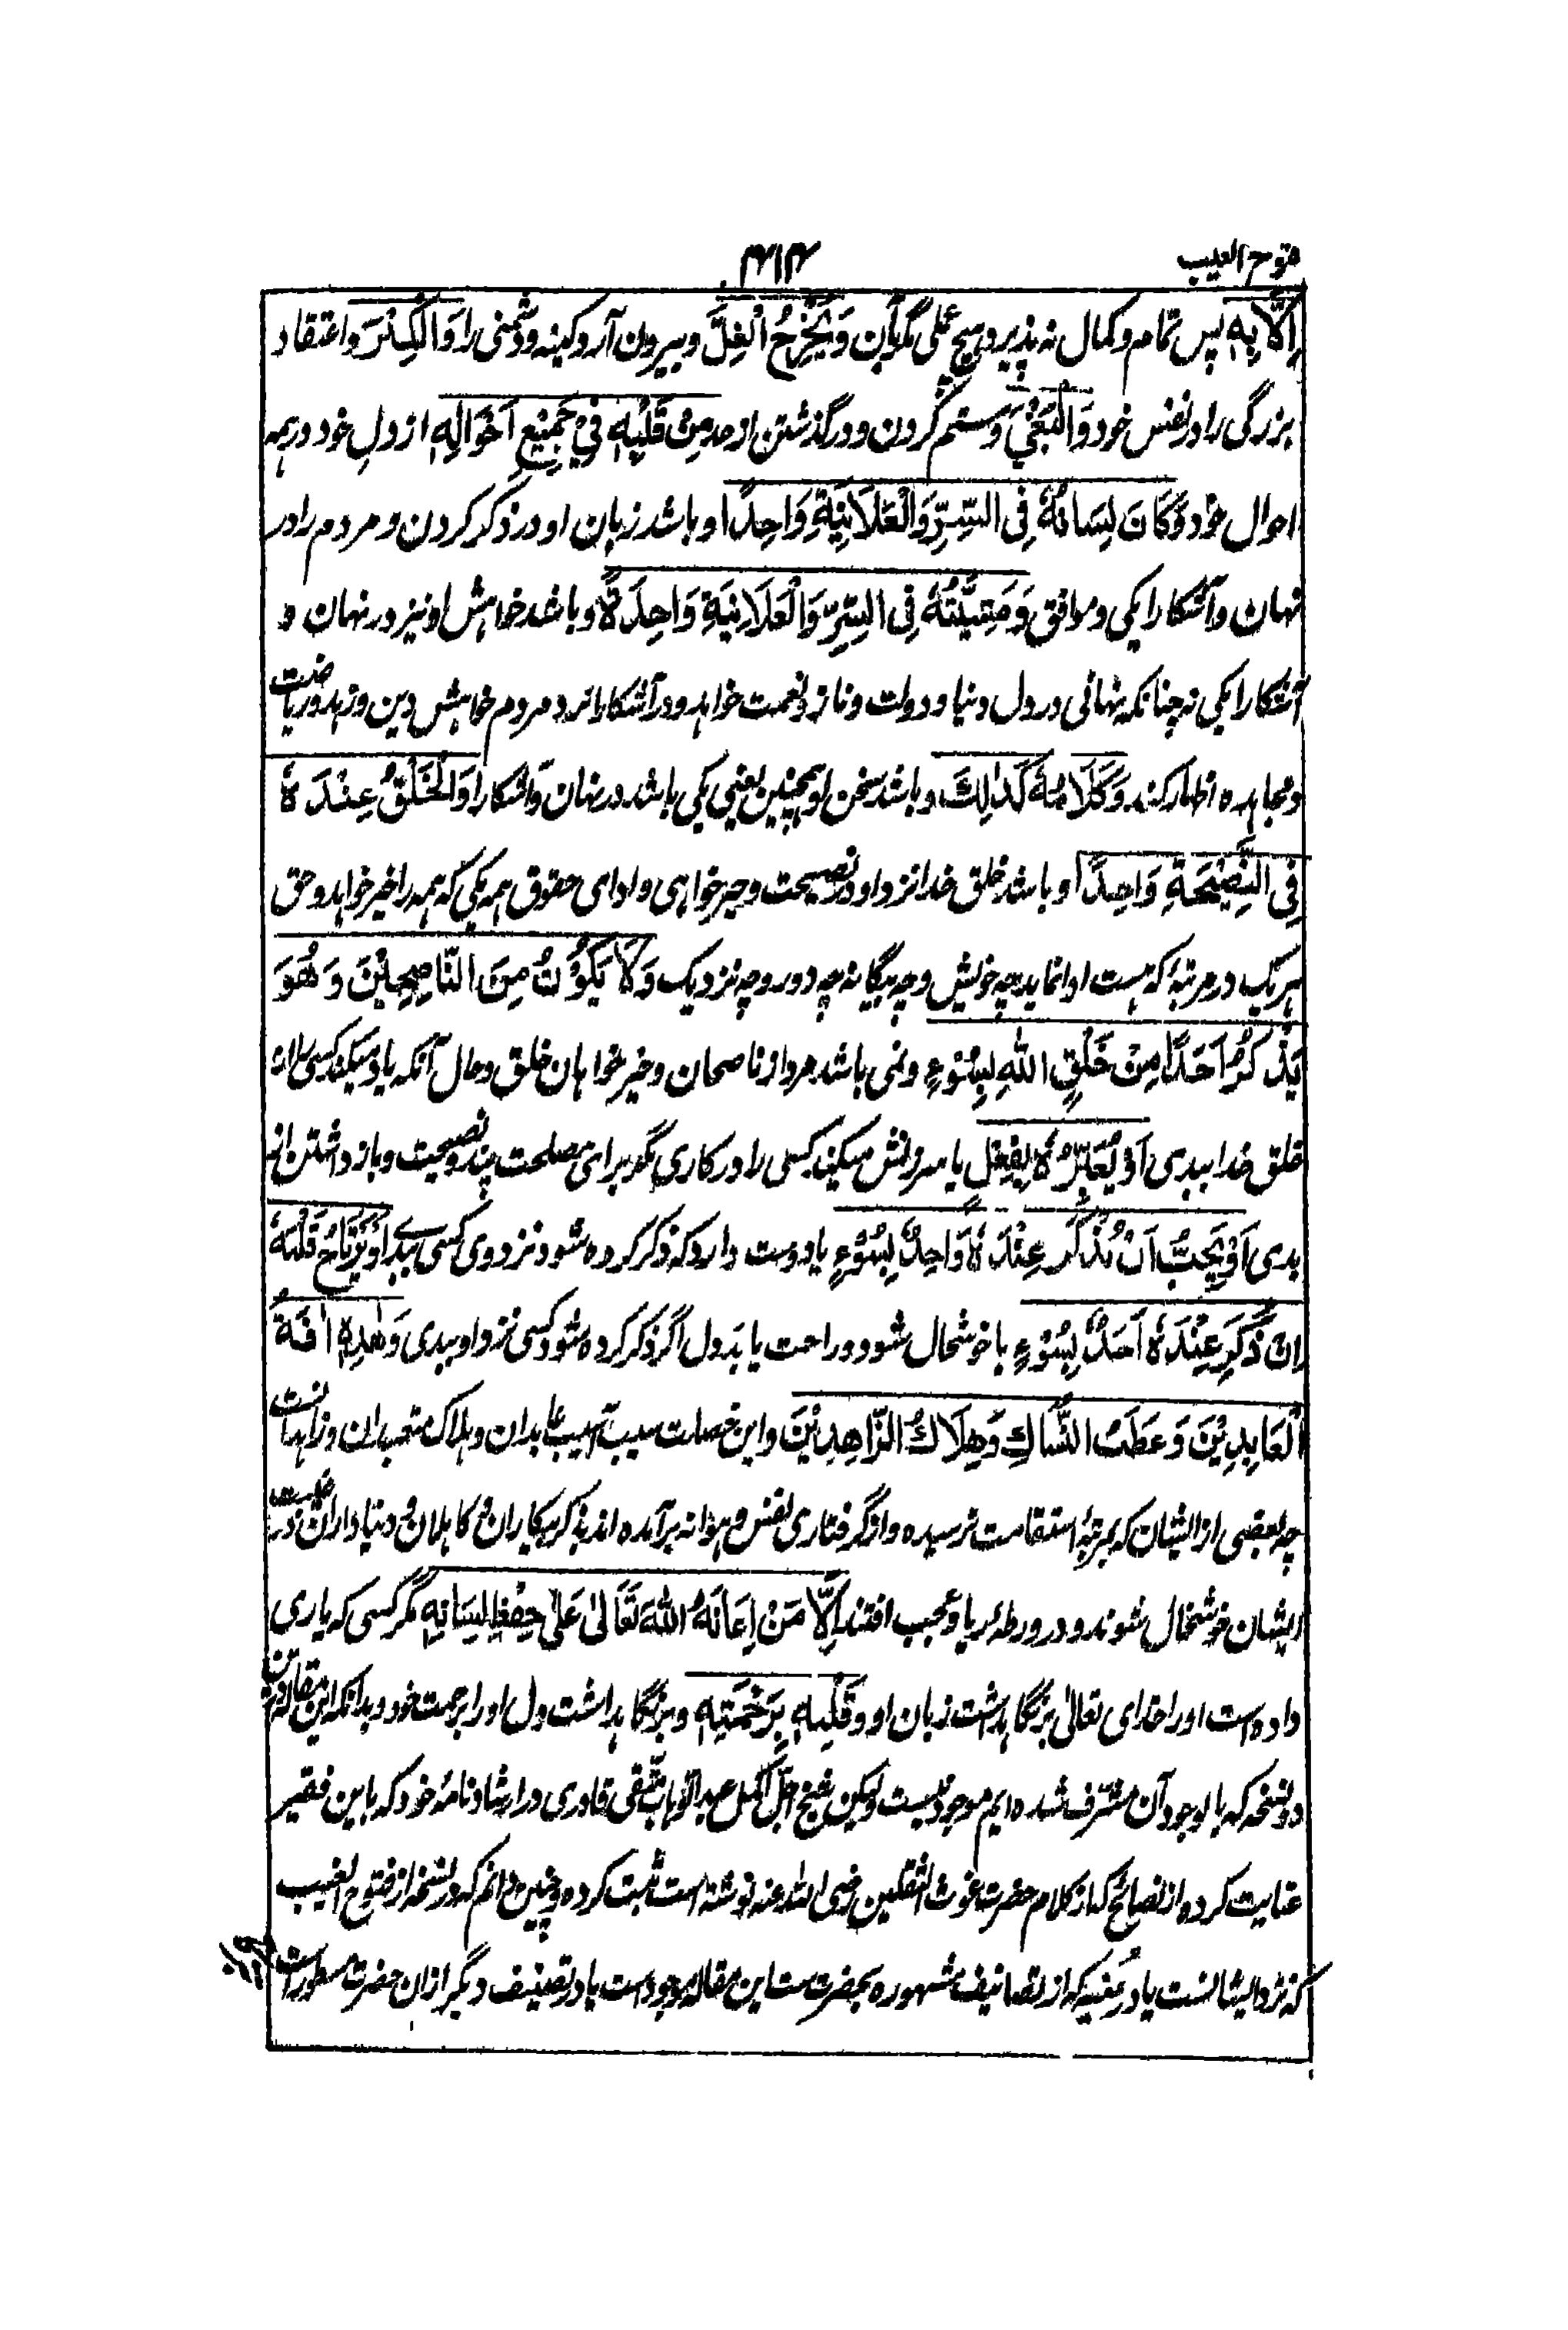 فتوح الغیب
۴۱۴
اِلَّا بِهٖ پس تمامہ و کمال نہ پذیرد ہیچ عملی مگر بآن وَ یُخْرِجُ الْغِلَّ و بیرون آرد کینہ و دشمنی را وَالْکِبْرَ و اعتقاد
بزرگی را در نفس خود وَالْبَغْیَ و ستم کردن و درگذشتن از حد مِنْ قَلْبِهٖ فِیْ جَمِیْعِ اَحْوَالِهٖ از دل خود در ہمہ
احوال خود وَکَانَ لِسَانُهٗ فِی السِّرِّ وَالْعَلَانِیَةِ وَاحِدًا و باشد زبان او در ذکر کردن و مردم را در
نہان و آشکارا یکی و موافق وَ مَشِیَّتُهٗ فِی السِّرِّ وَالْعَلَانِیَةِ وَاحِدَةً و باشد خواہش او نیز در نہان و
آشکارا یکی نہ چنانکہ نہانی در دل دنیا و دولت و ناز و نعمت خواہد و در آشکارا نزد مردم خواہش دین و زہد و ریاضت
و مجاہدہ اظہار کند وَ کَلَامُهٗ کَذٰلِكَ و باشد سخن او ہمچنین یعنی یکی باشد در نہان و آشکارا وَالْخَلْقُ عِنْدَهٗ
فِی النَّصِیْحَةِ وَاحِدًا و باشد خلق خدا نزد او در نصیحت و خیرخواہی و ادای حقوق ہمہ یکی کہ ہمہ را خیر خواہد و حق
ہر یک در مرتبۂ کہ ہست ادا نماید چہ خویش و چہ بیگانہ چہ دور و چہ نزدیک وَلَا یَکُوْنُ مِنَ النَّاصِحِیْنَ وَ هُوَ
یَذْکُرُ اَحَدًا مِنْ خَلْقِ اللّٰهِ بِسُوْءٍ و نمی باشد مرد از ناصحان و خیر خواہان خلق و حال آنکہ یاد میکند کسی را از
خلق خدا ببدی اَوْ یُعَیِّرُهٗ بِفِعْلٍ یا سرزنش میکند کسی را در کاری مگر برای مصلحت پند و نصیحت و باز داشتن از
بدی اَوْ یُحِبُّ اَنْ یُذْکَرَ عِنْدَهٗ وَاحِدٌ بِسُوْءٍ یا دوست دارد کہ ذکر کردہ شود نزد وی کسی ببدی اَوْ یَرْتَاحُ قَلْبُهٗ
اِنْ ذُکِرَ عِنْدَهٗ اَحَدٌ بِسُوْءٍ یا خوشحال شود و راحت یابد دل اگر ذکر کردہ شود کسی نزد او ببدی وَ هٰذِهٖ اٰفَةُ
الْعَابِدِیْنَ وَ عَطَبُ النُّسَّاكِ وَ هَلَاكُ الزَّاهِدِیْنَ و این خصلت سبب آسیب عابدان و ہلاک متعبدان و زاہدانست
چہ بعضی از ایشان کہ بمرتبۂ استقامت نرسیدہ و از گرفتاری نفس و ہوا نہ برآمدہ اند بذکر بیکاران و کاہلان و دنیاداران در
ایشان خوشحال شوند و در ورطۂ ریا و عجب افتند اِلَّا مَنْ اَعَانَهُ اللّٰهُ تَعَالٰی عَلٰی حِفْظِ لِسَانِهٖ مگر کسی کہ یاری
دادہ است او را خدای تعالیٰ بر نگاہداشت زبان او وَ قَلْبِهٖ بِرَحْمَتِهٖ و بر نگاہداشت دل او را برحمت خود و بدانکہ این مقالہ درین
دو نسخہ کہ با بوجود آن مشرف شدہ ایم موجود نیست ولیکن شیخ اجل اکمل عبدالوہاب متقی قادری در ارشاد نامۂ خود کہ باین فقیر
عنایت کردہ از نصائح کہ از کلام حضرت غوث الثقلین رضی اللہ عنہ نوشتہ است ثبت کردہ و چنین دانم کہ در نسخہ از فتوح الغیب
کہ نزد ایشانست یا در غنیہ کہ از تصانیف مشہورہ آنحضرت ست این مقالہ موجود ست یا در تصنیف دیگر از ان حضرت مسطور است